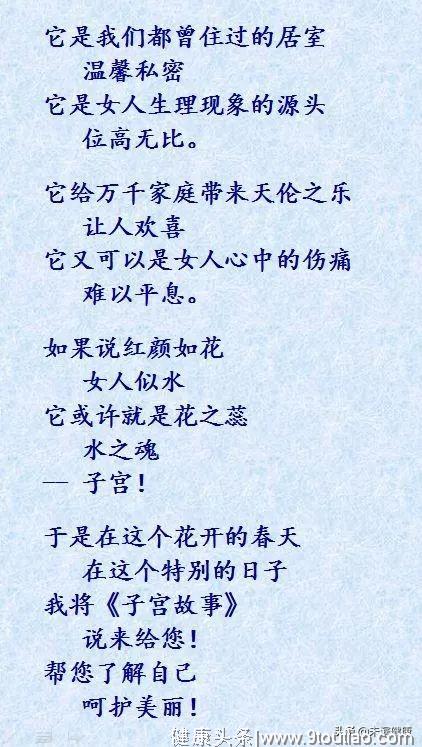 它是我们都曾住过的居室
温馨私密
它是女人生理现象的源头
位高无比。
它给万千家庭带来天伦之乐
让人欢喜
它又可以是女人心中的伤痛
难以平息。
如果说红颜如花
女人似水
它或许就是花之蕊
水之魂
— 子宫!
于是在这个花开的春天
在这个特别的日子
我将《子宫故事》
说来给您!
帮您了解自己
呵护美丽!
健康头条|www.9toutiao.com